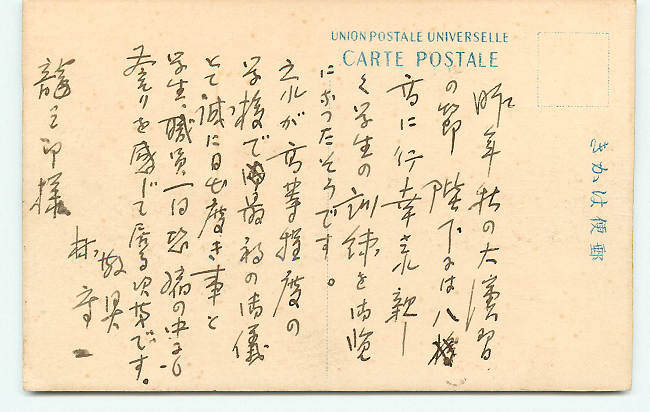 UNION POSTALE UNIVERSELLE
CARTE POSTALE
きかは便郵
昨年秋の大演習
の節 陛下には八
高に行幸 親し
く学生の訓練を御覧
になつたそうです。
これが高等程度の
学校で 最初の御儀
とて誠に目出度き事と
学生、職員一同恐 の中にも
を感じて居る次第です。
敬具
林
龍 様